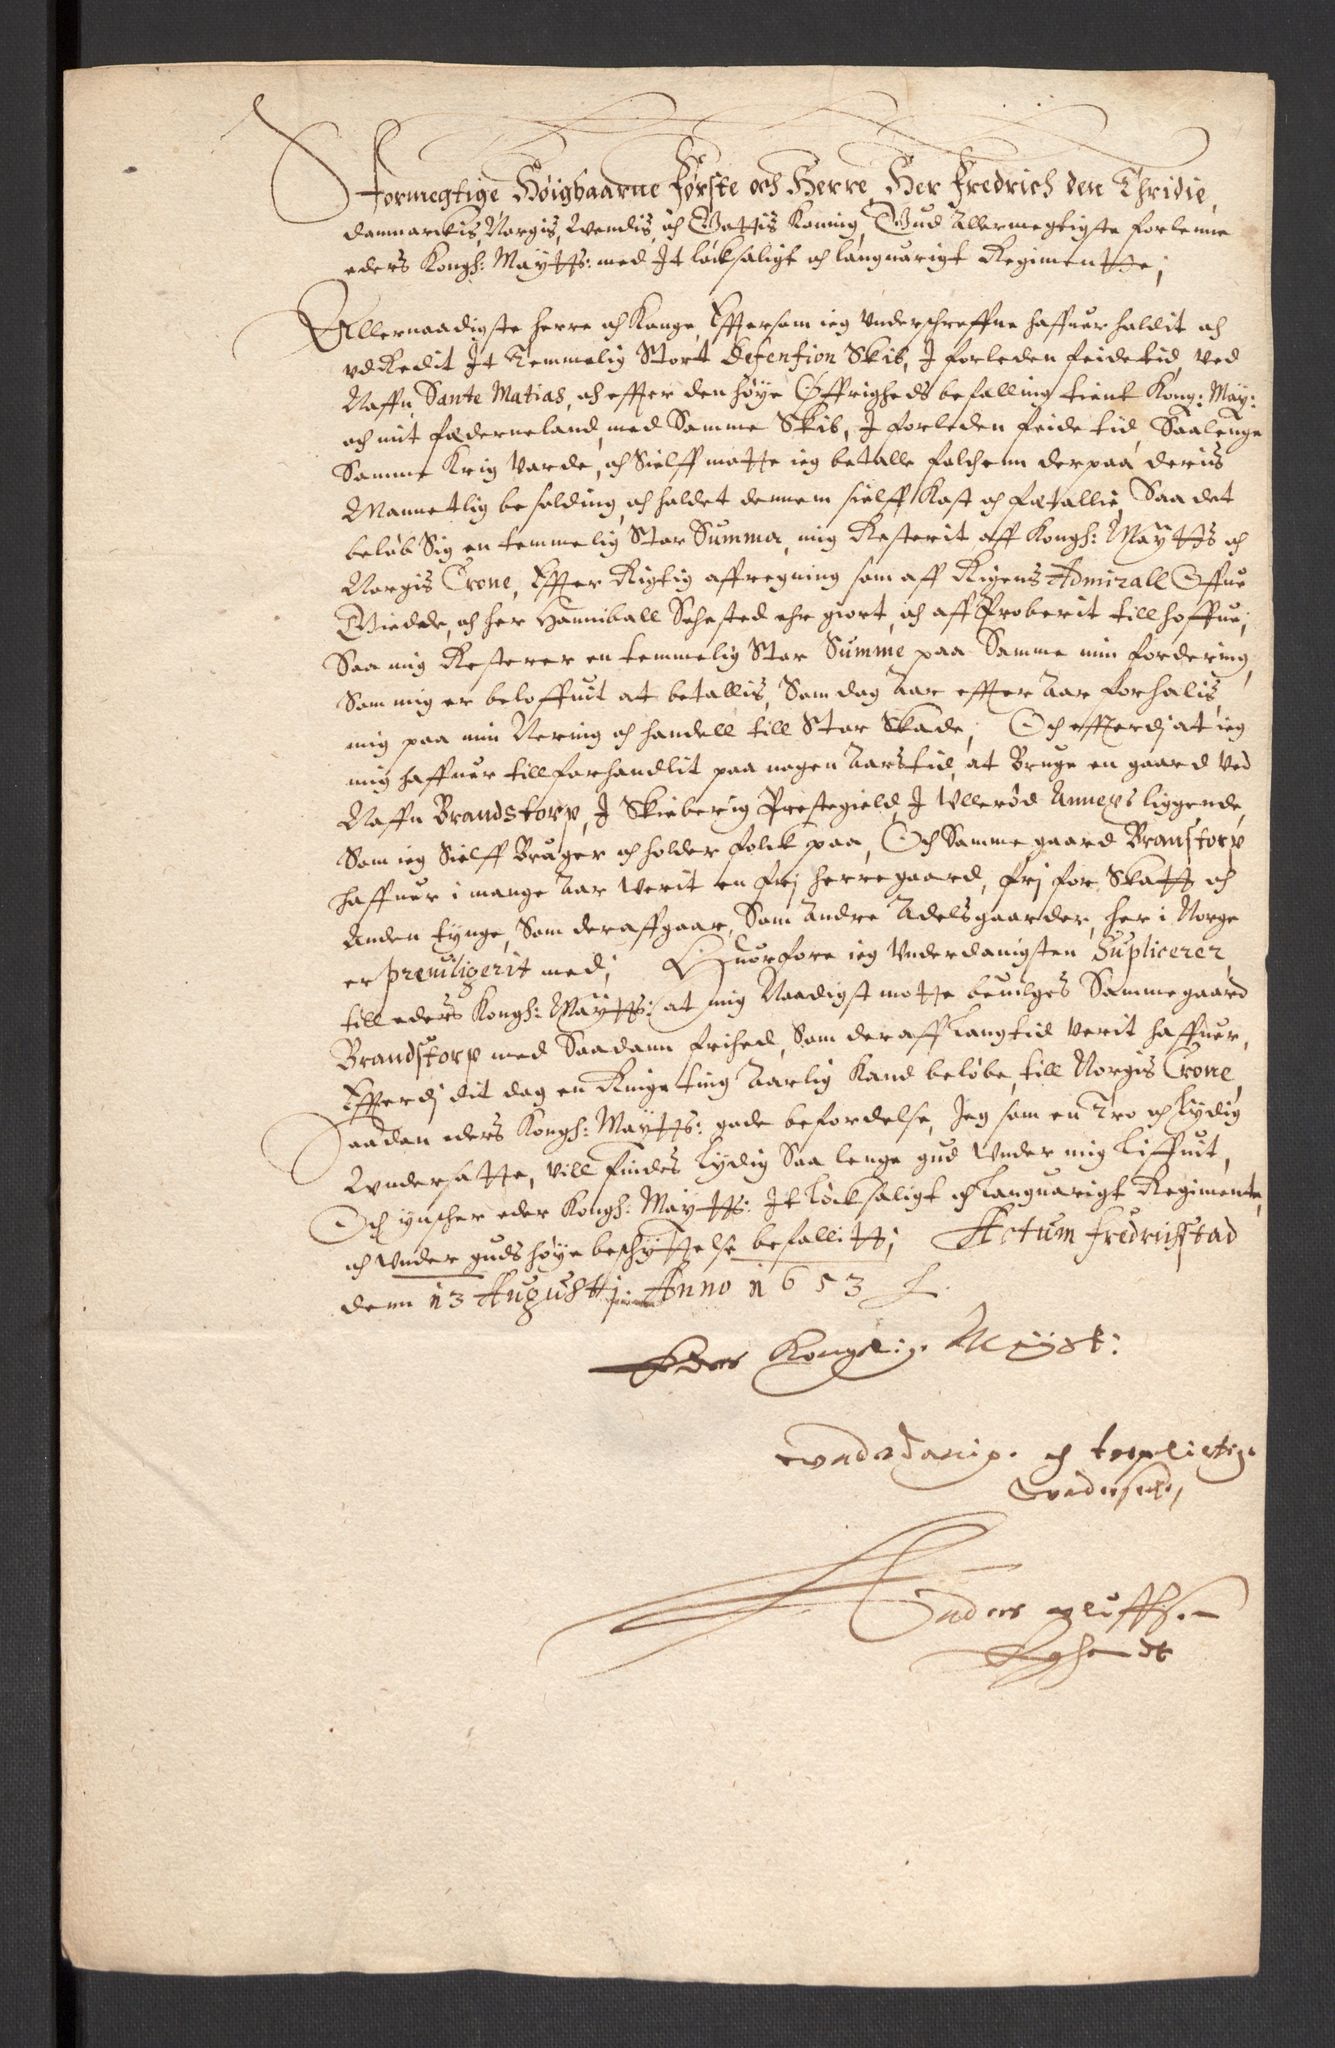 Stormegtige Høigbaarne Første och Herre, Her Fredrich den Thridie,
Danmarckis, Norgis, Wendis, och Gottis Koning, Gud Allermegtigste forlenne
eders Kongh: Maytts: med It løcksaligt och languarigt Regimentte;
Allernaadigste herre och Konge, Effttersom ieg Underschreffne haffuer haldit och
udRedit It temmelig Stort Defention Skib, I forleden feide tid, ved
Naffn Sante Matias, och effter den høye Øffrigheds befalling tient Kong: May:
och mit fæderneland, med Samme Skib, I forleden feide tid, Saalenge
Samme Krig Varde, och Sielff motte ieg betalle folchenn der paa deris
Mannetlig besolding, och haldet dennem sielff Kost och fetallie, Saa det
beløb Sig en temmelig Stor Summa, mig Resterit aff Kongh: Maytts och
Norgis Crone, Effter Rigtig affregning som aff Rigens Admirall Offue
Giedde, och her Hanniball Sehested ehr giort, och aff Proberit till hoffue;
Saa mig Resterer en temmelig Stor Summe paa Samme min fordering,
Som mig er beloffuit at betallis, Som dog Aar effter Aar forhalis,
mig paa min Nering och handell till Stor Skade; Och effterdj at ieg
mig haffuer tillforhandlit paa nogen Aarstid, at Bruge en gaard ved
Naffn Brandstorp, I Skieberig Prestegield, I Ullerød Annexs liggende,
Som ieg Sielff Bruger och holder folck paa, Och Samme gaard Branstorp
haffuer i mange Aar Verit en frj herregaard, frj for Skatt och
Anden tynge, Som deraffgaar, Som Andre Adelsgaarder, her i Norge
er preuiligerit med; Huorfore ieg Underdanigsten Suplicerer
till eders Kongh: Maytts: at mig Naadigst motte beuilges Samme gaard
Brandstorp med Saadann frihed, Som deraff langtid Verit haffuer,
Effterdj dit dog en Ringe ting Aarlig Kand beløbe, till Norgis Crone,
Saadan eders Kongh: Maytts: gode befordelse, Jeg som en Tro och lydig
Undersatte, vill findes lydig Saa lenge gud Under mig liffuit,
Och ynscher eder Kongh: Maytts: It løcksaligt och languarigt Regimente,
och Under guds høye beschyttelse befallitt; Actum Fredrichstad
denn 13 Augustij Anno 1653
Eders Konglig. Mayst:
Underdanig. och troplictig.
Undersatt
Anders Oluffsen